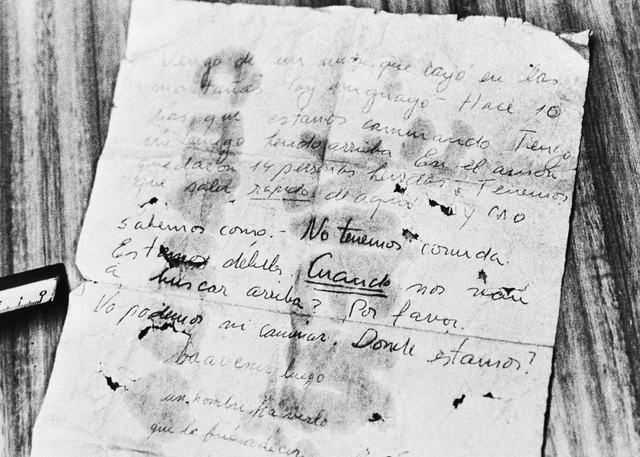 Vengo de un avión que cayó en las
montañas. Soy uruguayo - Hace 10
días que estamos caminando. Tengo
un amigo herido arriba. En el avión
quedaron 14 personas heridas. Tenemos
que salir rápido de aquí y no
sabemos como. - No tenemos comida.
Estamos débiles. Cuando nos van
a buscar arriba? Por favor.
No podemos ni caminar. Donde estamos?
venir luego
un hombre a verlo
que le fui a decir